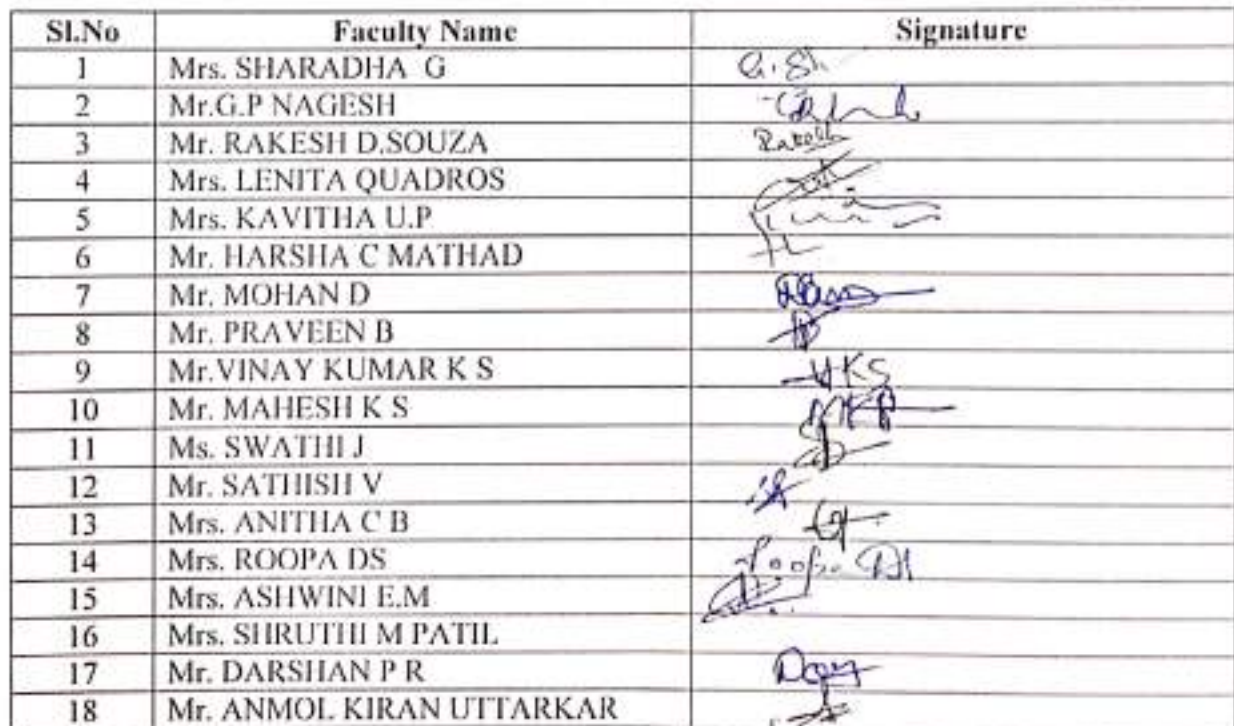 Sl.No Faculty Name Signature
1 Mrs. SHARADHA G G. Sh
2 Mr.G.P NAGESH
3 Mr. RAKESH D.SOUZA Rakesh
4 Mrs. LENITA QUADROS
5 Mrs. KAVITHA U.P
6 Mr. HARSHA C MATHAD
7 Mr. MOHAN D
8 Mr. PRAVEEN B
9 Mr.VINAY KUMAR K S VKS
10 Mr. MAHESH K S
11 Ms. SWATHI J
12 Mr. SATHISH V
13 Mrs. ANITHA C B
14 Mrs. ROOPA DS Roopa DS
15 Mrs. ASHWINI E.M
16 Mrs. SHRUTHI M PATIL
17 Mr. DARSHAN P R
18 Mr. ANMOL KIRAN UTTARKAR